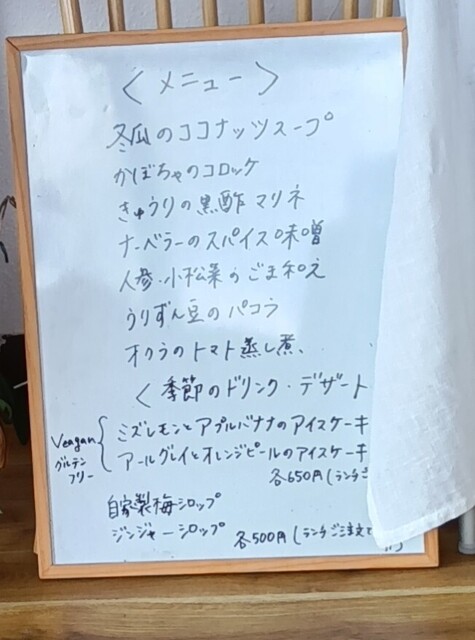 〈メニュー〉
冬瓜のココナッツスープ
かぼちゃのコロッケ
きゅうりの黒酢マリネ
ナーベラーのスパイス味噌
人参・小松菜のごま和え
うりずん豆のパコラ
オクラのトマト蒸し煮、
〈季節のドリンク・デザート
Veagan グルテンフリー
ミズレモンとアップルバナナのアイスケーキ
アールグレイとオレンジピールのアイスケーキ
各650円(ランチご
自家製梅シロップ
ジンジャーシロップ 各500円(ランチご注文で